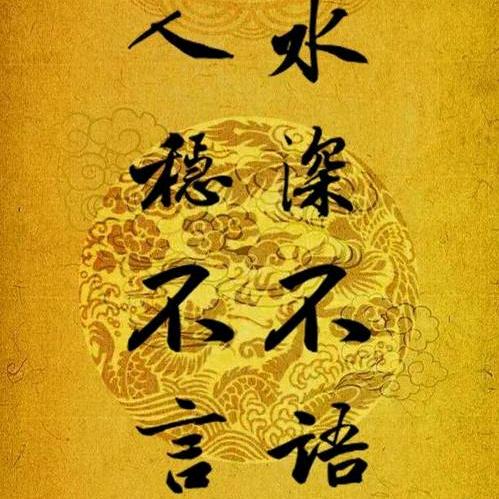 水深不语
人穩不言